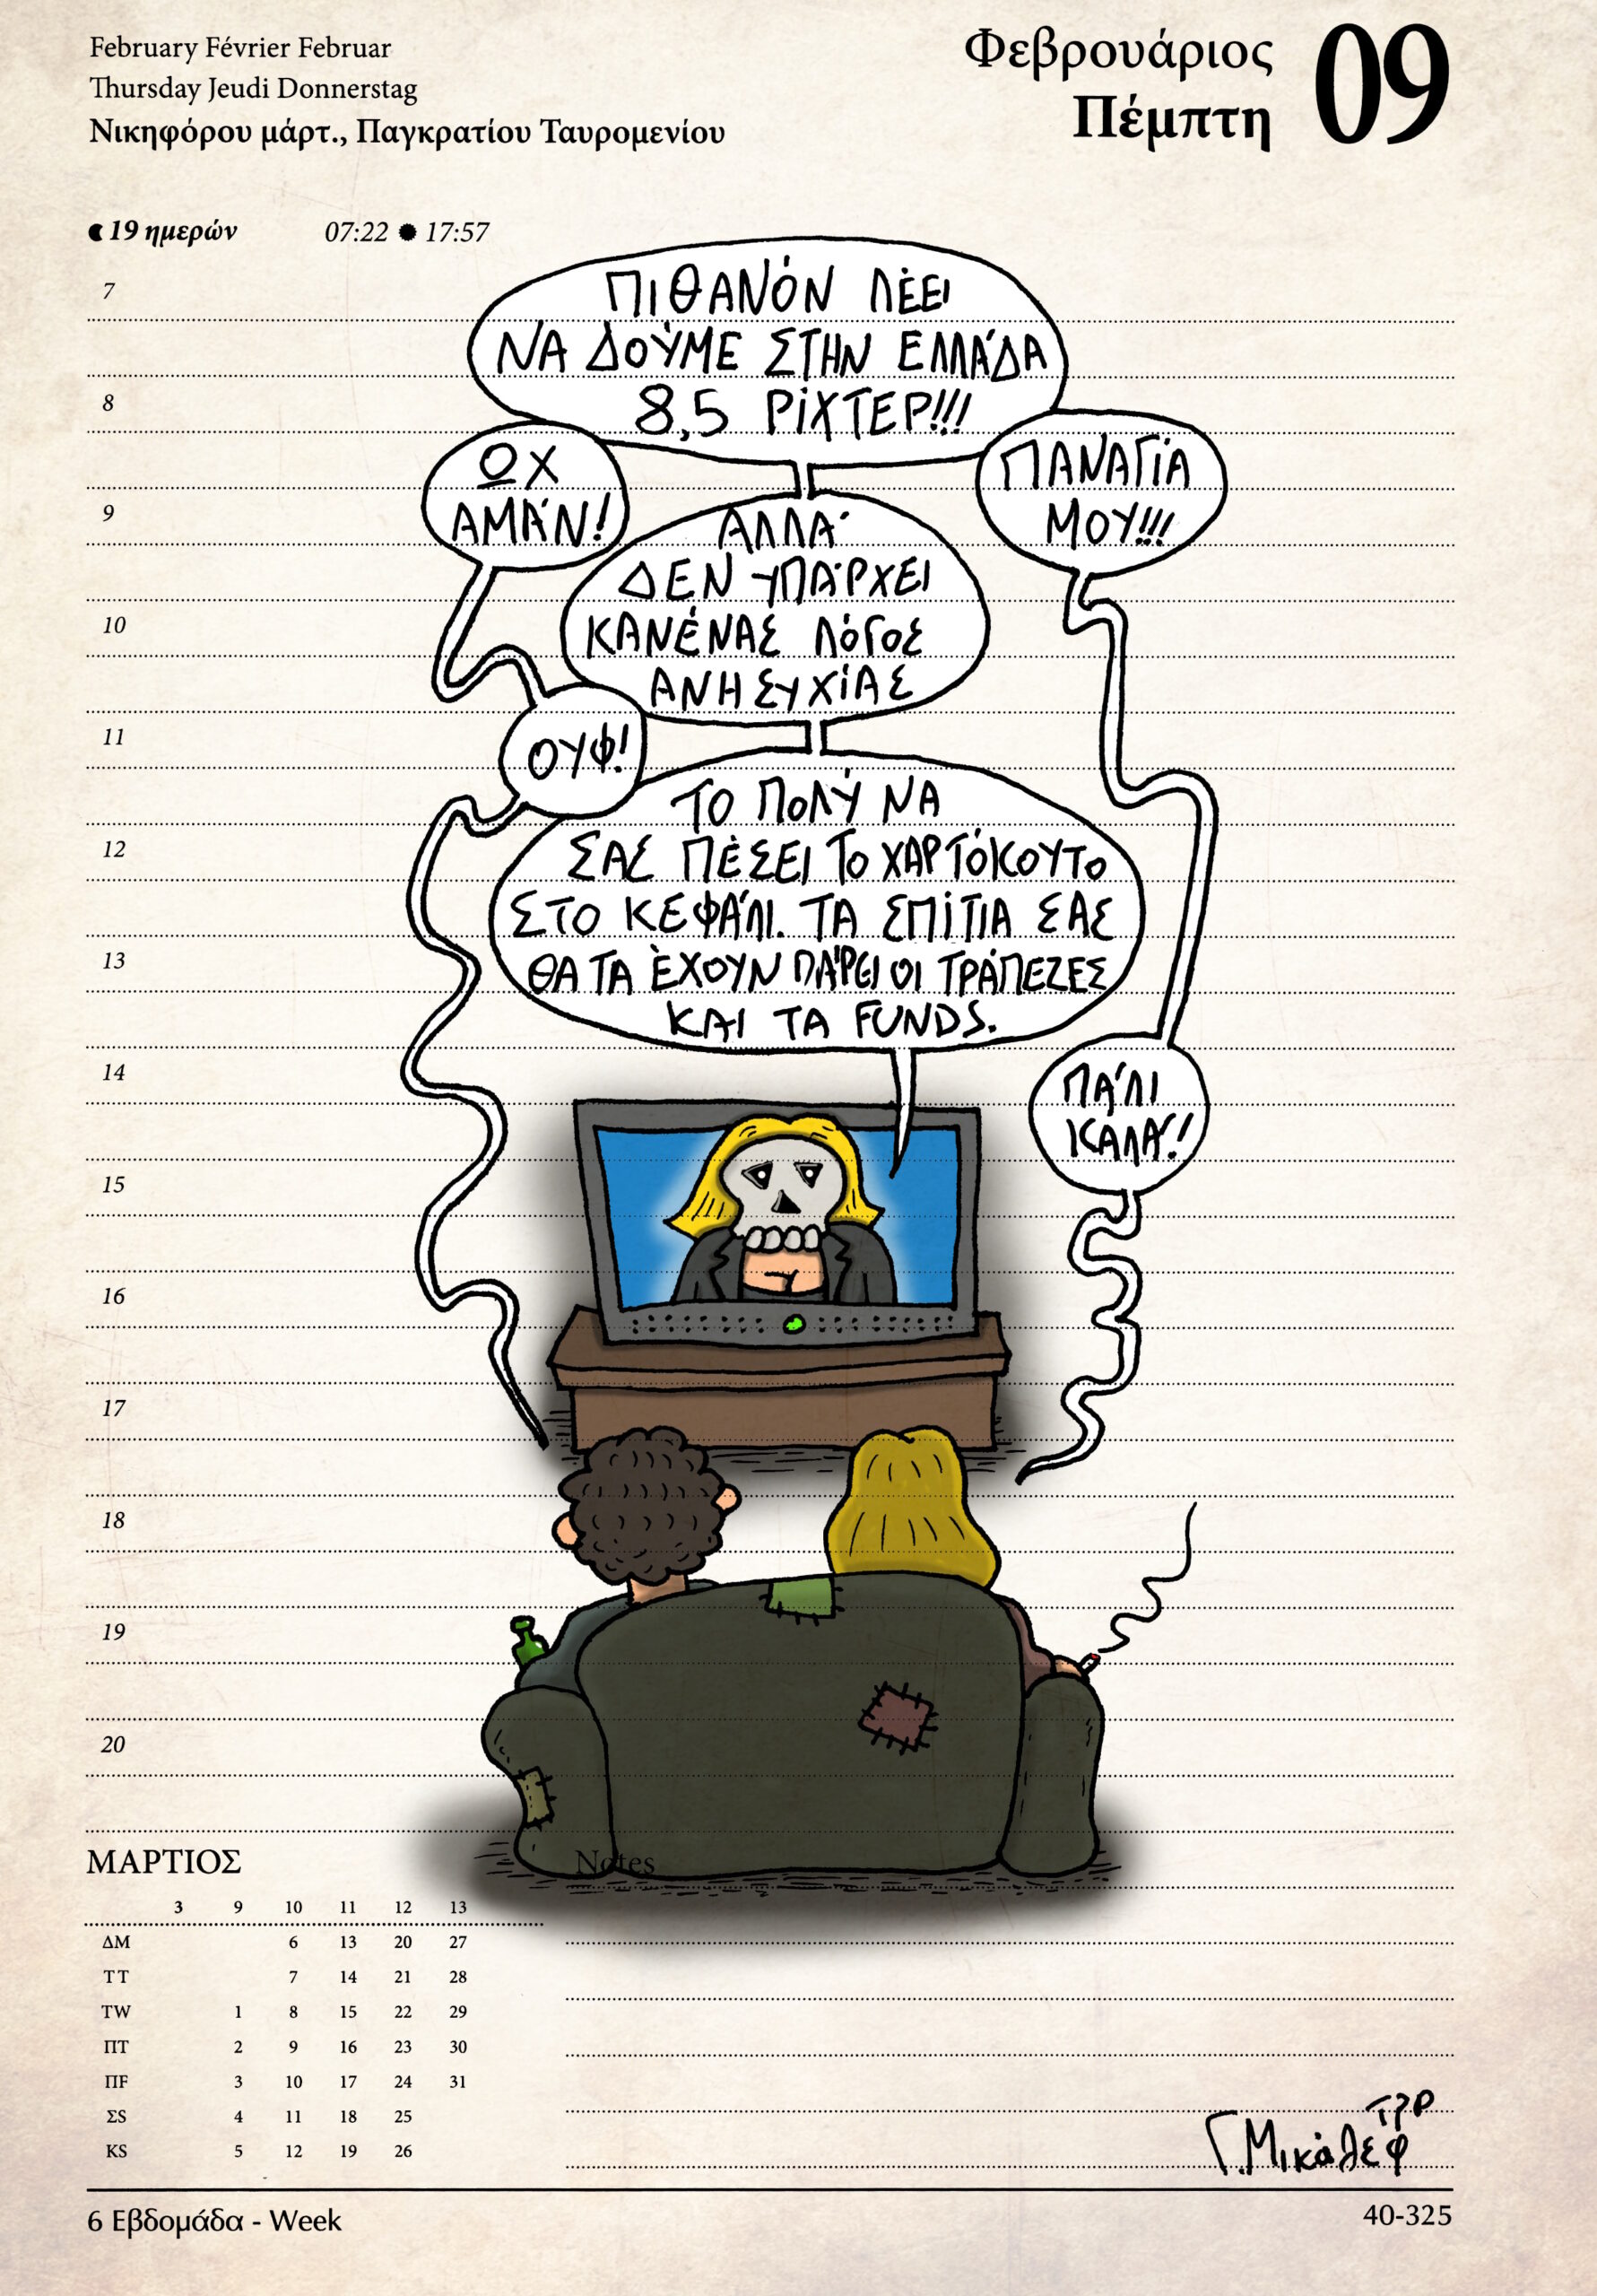 February Février Februar
Thursday Jeudi Donnerstag
Νικηφόρου μάρτ., Παγκρατίου Ταυρομενίου
Φεβρουάριος
Πέμπτη
09
19 ημερών 07:22 17:57
7
8
9
10
11
12
13
14
15
16
17
18
19
20
ΠΙΘΑΝΌΝ ΛΈΕΙ
ΝΑ ΔΟΎΜΕ ΣΤΗΝ ΕΛΛΆΔΑ
8,5 ΡΊΧΤΕΡ!!!
ΩΧ
ΑΜΆΝ!
ΠΑΝΑΓΊΑ
ΜΟΥ!!!
ΑΛΛΆ
ΔΕΝ ΥΠΆΡΧΕΙ
ΚΑΝΈΝΑΣ ΛΌΓΟΣ
ΑΝΗΣΥΧΊΑΣ
ΟΥΦ!
ΤΟ ΠΟΛΎ ΝΑ
ΣΑΣ ΠΈΣΕΙ ΤΟ ΧΑΡΤΌΚΟΥΤΟ
ΣΤΟ ΚΕΦΆΛΙ. ΤΑ ΣΠΊΤΙΑ ΣΑΣ
ΘΑ ΤΑ ΈΧΟΥΝ ΠΆΡΕΙ ΟΙ ΤΡΆΠΕΖΕΣ
ΚΑΙ ΤΑ FUNDS.
ΠΆΛΙ
ΚΑΛΆ!
ΜΑΡΤΙΟΣ
Notes
3 9 10 11 12 13
ΔΜ 6 13 20 27
ΤΤ 7 14 21 28
ΤW 1 8 15 22 29
ΠΤ 2 9 16 23 30
ΠF 3 10 17 24 31
ΣS 4 11 18 25
ΚS 5 12 19 26
Γ. Μικάλεφ
6 Εβδομάδα - Week
40-325